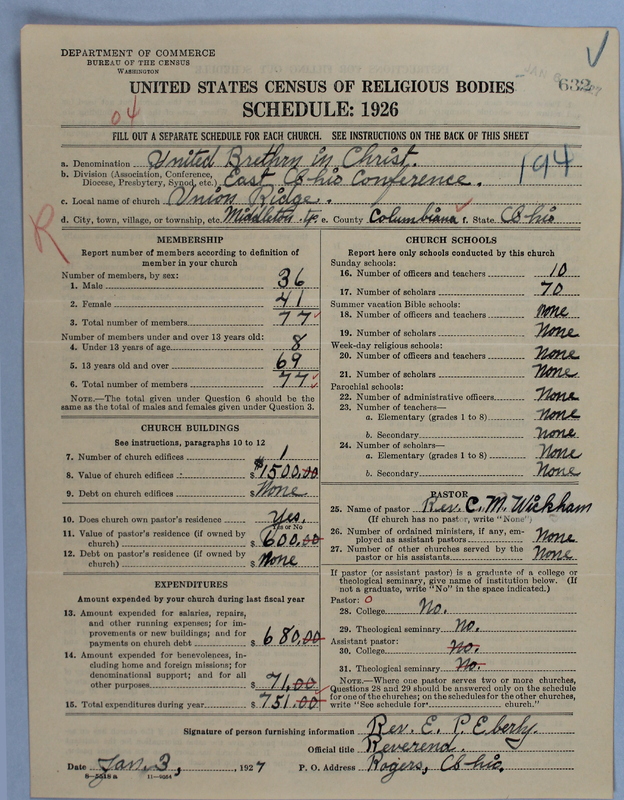 DEPARTMENT OF COMMERCE
BUREAU OF THE CENSUS
WASHINGTON
632
UNITED STATES CENSUS OF RELIGIOUS BODIES
SCHEDULE: 1926
04
FILL OUT A SEPARATE SCHEDULE FOR EACH CHURCH. SEE INSTRUCTIONS ON THE BACK OF THIS SHEET
a. Denomination United Brethrn in Christ.
b. Division (Association, Conference, Diocese, Presbytery, Synod, etc.) East Ohio Conference.
194
c. Local name of church Union Ridge.
d. City, town, village, or township, etc. Middleton Tp e. County Columbiana f. State Ohio
R
MEMBERSHIP
Report number of members according to definition of
member in your church
Number of members, by sex:
1. Male 36
2. Female 41
3. Total number of members 77
Number of members under and over 13 years old:
4. Under 13 years of age 8
5. 13 years old and over 69
6. Total number of members 77
NOTE.—The total given under Question 6 should be
same as the total of males and females given under Question 3.
CHURCH BUILDINGS
See instructions, paragraphs 10 to 12
7. Number of church edifices 1
8. Value of church edifices $ $1500,00
9. Debt on church edifices $ None
10. Does church own pastor's residence Yes.
Yes or No
11. Value of pastor's residence (if owned by
church) $ 600,00
12. Debt on pastor's residence (if owned by
church) $ None
EXPENDITURES
Amount expended by your church during last fiscal year
13. Amount expended for salaries, repairs,
and other running expenses; for im-
provements or new buildings; and for
payments on church debt $ 680,00
14. Amount expended for benevolences, in-
cluding home and foreign missions; for
denominational support; and for all
other purposes $ 71,00
15. Total expenditures during year $ 751.00
CHURCH SCHOOLS
Report here only schools conducted by this church
Sunday schools:
16. Number of officers and teachers 10
17. Number of scholars 70
Summer vacation Bible schools:
18. Number of officers and teachers None
19. Number of scholars None
Week-day religious schools:
20. Number of officers and teachers None
21. Number of scholars None
Parochial schools:
22. Number of administrative officers None
23. Number of teachers—
a. Elementary (grades 1 to 8) None
b. Secondary None
24. Number of scholars—
a. Elementary (grades 1 to 8) None
b. Secondary None
PASTOR
25. Name of pastor Rev. C. M. Wickham
(If church has no pastor, write "None")
26. Number of ordained ministers, if any, em-
ployed as assistant pastors None
27. Number of other churches served by the
pastor or his assistants None
If pastor (or assistant pastor) is a graduate of a college or
theological seminary, give name of institution below. (If
not a graduate, write "No" in the space indicated.)
Pastor: 0
28. College No.
29. Theological seminary No.
Assistant pastor:
30. College No.
31. Theological seminary No.
NOTE.—Where one pastor serves two or more churches,
Questions 28 and 29 should be answered only on the schedule
for one of the churches; on the schedules for the other churches,
write "See schedule for church."
Signature of person furnishing information Rev. E. P. Eberly.
Official title Reverend.
Date Jan. 3, 1927 P. O. Address Rogers, Ohio.
8—5518a 11—9264